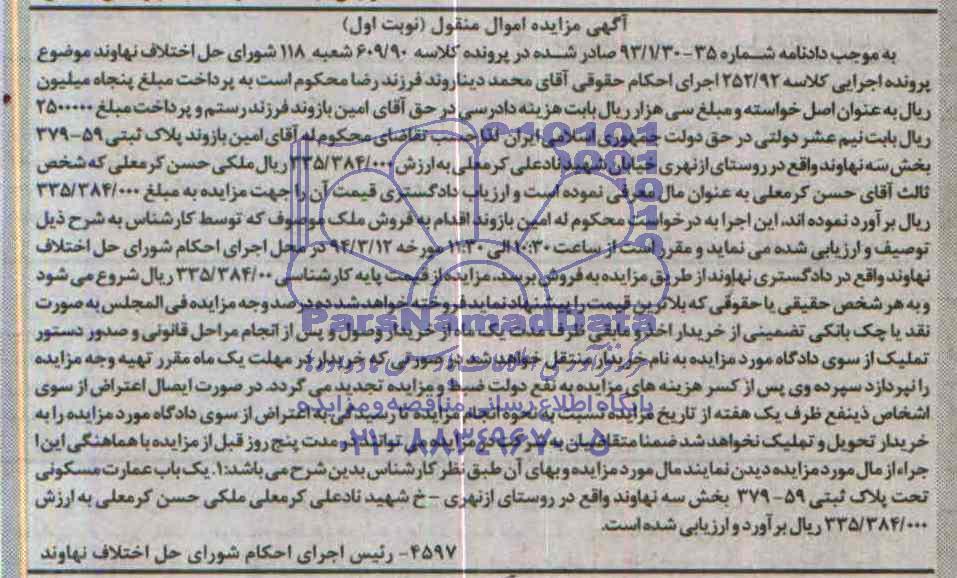 آگهی مزایده اموال منقول (نوبت اول)
به موجب دادنامه شماره ۳۵-۹۳/۱/۳۰ صادر شده در پرونده کلاسه ۶۰۹/۹۰ شعبه ۱۱۸ شورای حل اختلاف نهاوند موضوع
پرونده اجرایی کلاسه ۲۵۲/۹۲ اجرای احکام حقوقی آقای محمد دیناروند فرزند رضا محکوم است به پرداخت مبلغ پنجاه میلیون
ریال به عنوان اصل خواسته و مبلغ سی هزار ریال بابت هزینه دادرسی در حق آقای امین بازوند فرزند رستم و پرداخت مبلغ ۲۵۰۰۰۰۰
ریال بابت نیم عشر دولتی در حق دولت جمهوری اسلامی ایران لذا حسب تقاضای محکوم له آقای امین بازوند پلاک ثبتی ۵۹-۳۷۹
بخش سه نهاوند واقع در روستای ازنهری خیابان شهید نادعلی کرمعلی به ارزش ۳۳۵/۳۸۴/۰۰۰ ریال ملکی حسن کرمعلی که شخص
ثالث آقای حسن کرمعلی به عنوان مال معرفی نموده است و ارزیاب دادگستری قیمت آن را جهت مزایده به مبلغ ۳۳۵/۳۸۴/۰۰۰
ریال برآورد نموده اند، این اجرا به درخواست محکوم له امین بازوند اقدام به فروش ملک موصوف که توسط کارشناس به شرح ذیل
توصیف و ارزیابی شده می نماید و مقرر است از ساعت ۱۰:۳۰ الی ۱۱:۳۰ مورخه ۹۴/۳/۱۲ در محل اجرای احکام شورای حل اختلاف
نهاوند واقع در دادگستری نهاوند از طریق مزایده به فروش برسد. مزایده از قیمت پایه کارشناسی ۳۳۵/۳۸۴/۰۰ ریال شروع می شود
و به هر شخص حقیقی یا حقوقی که بالاترین قیمت را پیشنهاد نماید فروخته خواهد شد ده درصد وجه مزایده فی المجلس به صورت
نقد یا چک بانکی تضمینی از خریدار اخذ و مابقی ظرف مدت یک ماه از خریدار وصول و پس از انجام مراحل قانونی و صدور دستور
تملیک از سوی دادگاه مورد مزایده به نام خریدار منتقل خواهد شد در صورتی که خریدار در مهلت یک ماه مقرر تهیه وجه مزایده
را نپردازد سپرده وی پس از کسر هزینه های مزایده به نفع دولت ضبط و مزایده تجدید می گردد. در صورت ایصال اعتراض از سوی
اشخاص ذینفع ظرف یک هفته از تاریخ مزایده نسبت به نحوه انجام مزایده تا رسیدگی به اعتراض از سوی دادگاه مورد مزایده را به
خریدار تحویل و تملیک نخواهد شد ضمنا متقاضیان به شرکت در مزایده می توانند در مدت پنج روز قبل از مزایده با هماهنگی این ا
جراء از مال مورد مزایده دیدن نمایند مال مورد مزایده و بهای آن طبق نظر کارشناس بدین شرح می باشد: ۱. یک باب عمارت مسکونی
تحت پلاک ثبتی ۵۹-۳۷۹ بخش سه نهاوند واقع در روستای ازنهری - خ شهید نادعلی کرمعلی ملکی حسن کرمعلی به ارزش
۳۳۵/۳۸۴/۰۰۰ ریال برآورد و ارزیابی شده است.
۴۵۹۷- رئیس اجرای احکام شورای حل اختلاف نهاوند
ParsNamadData
پایگاه اطلاع رسانی مناقصه و مزایده
۰۲۱-۸۸۳۴۹۶۷۰-۵